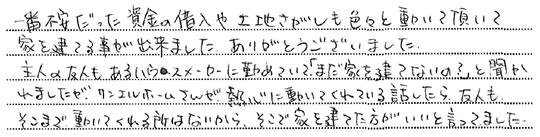 一番不安だった資金の借入や土地さがしも色々と動いて頂いて
家を建てる事が出来ました。ありがとうございました。
主人の友人も、あるハウスメーカーに勤めていて「まだ家を建てないの?」と聞か
れましたが、サンエルホームさんが熱心に動いてくれている話したら、友人も
そこまで動いてくれる所はないから、そこで家を建てた方がいいと言ってました。